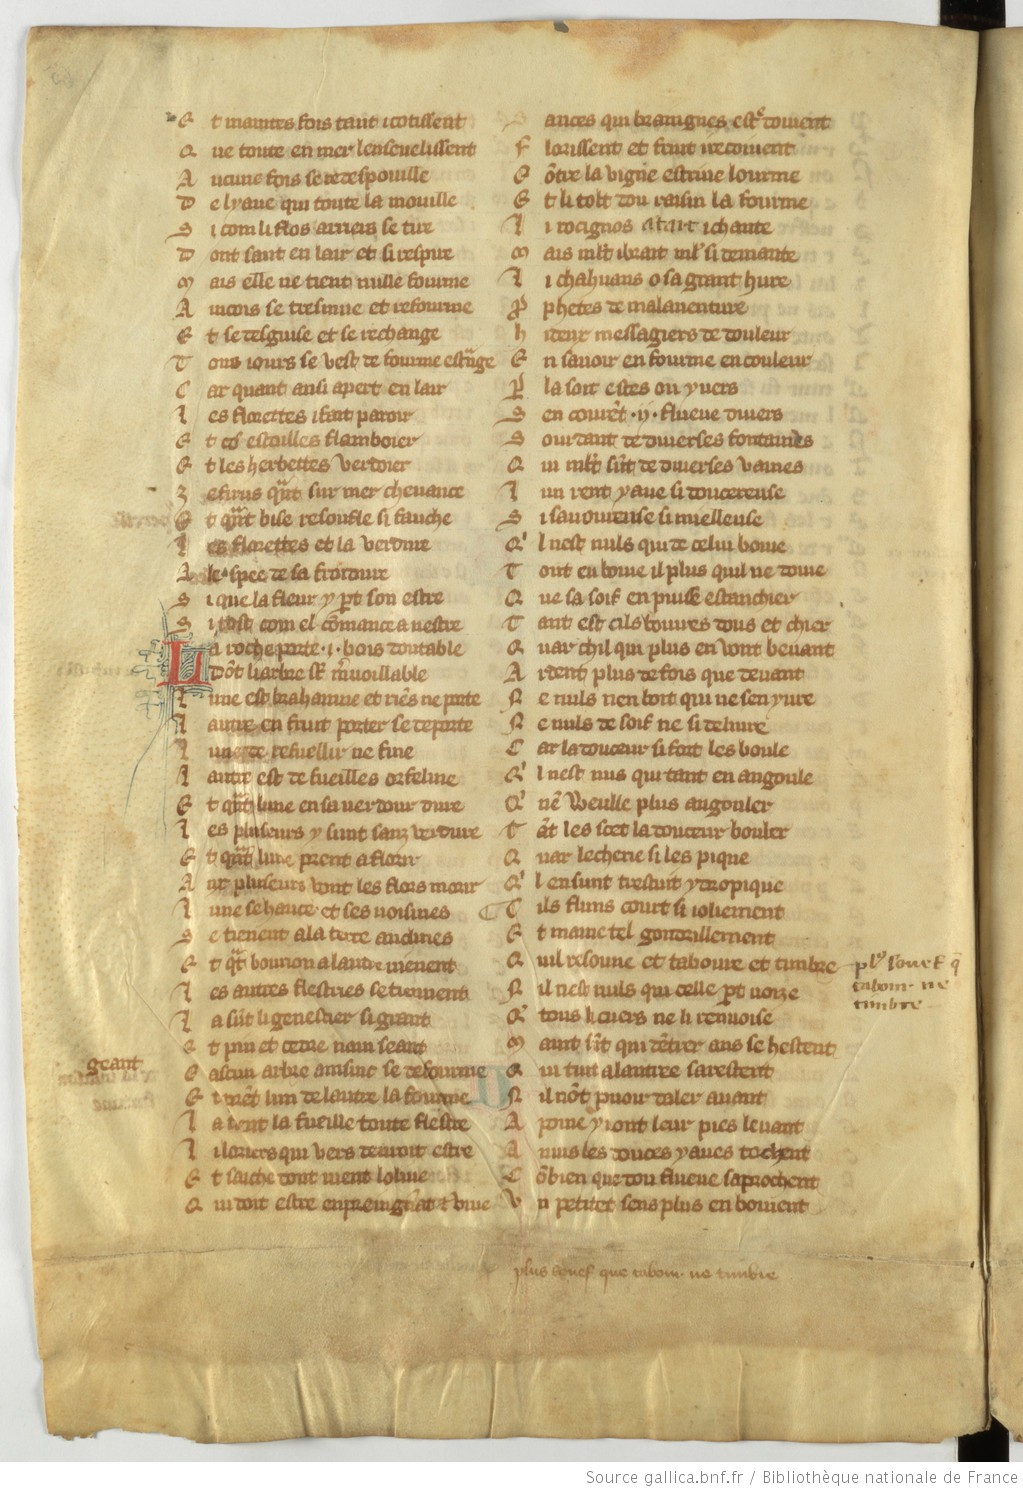 Et maintes fois tant i cotissent
Que toute en mer lenseuelissent
Aucune fois se redespouille
De lyaue qui toute la mouille
Si com li flos arriers se tire
Dont saut en lair et si respire
Mais elle ne tient nulle fourme
Aincois se tresmue et refourme
Et se desguise et se rechange
Tous iours se vest de fourme estrãge
Car quant ainsi apert en lair
Les florettes i fait paroir
Et es estoilles flamboier
Et les herbettes verdoier
Zefirus qñt sur mer cheuauce
Et qñt bise resoufle si fauche
Les florettes et la verdure
A lespee de sa froidure
Si que la fleur y pt son estre
Si tost com el cõmance a nestre
La roche porte .i. bois doutable
Dõt li arbre sõt mũoillable
Lune est brahaigne et riẽs ne porte
Lautre en fruit porter se deporte
Lune de fuellir ne fine
Lautre est de fueilles orfeline
Et qñt lune en sa verdour dure
Les pluseurs y sunt sanz verdure
Et qñt lune prent a florir
A pluseurs vont les flors morir
Lune se hauce et ses uoisines
Se tienent a la terre enclines
Et qñt bourion a lautre uienent
Les autres flestries se tienent
La sũt li genestier si grant
Et pin et cedre nain seant
geant
Cascun arbre ainsinc se defourme
Et prẽt lun de lautre la fourme
La tient la fueille toute flestre
Li loriers qui vers deuroit estre
Et seiche dont uient loliue
Qui doit estre enpreingñt et viue
Sauces qui brahaignes estr douient
Florissent et fruit recoiuent
Cõtre la vigne estriue lourme
Et li tolt dou raisin la fourme
Li rocignos a tart i chante
Mais mlt i brait mlt si demante
Li chahuans o sa grant hure
Pphetes de malauenture
Hideux messagiers de douleur
En sauoir en fourme en couleur
Par la soit estes ou yuers
Sen courẽt .ij. flueue diuers
Sourdant de diuerses fontaines
Qui mlt sũt de diuerses vaines
Lun rent yaue si doucereuse
Si sauoureuse si mielleuse
Quil nest nuls qui de celui boiue
Tout en boiue il plus quil ne doiue
Que sa soif en puisse estanchier
Tant est cils boiures dous et chier
Quar chil qui plus en vont beuant
Ardent plus de fois que deuant
Ne nuls nen boit qui ne sen yure
Ne nuls de soif ne si deliure
Car la douceur si fort les boule
Quil nest nus qui tant en angoule
Quil nẽ Weulle plus angouler
Tãt les scet la douceur bouler
Quar lecherie si les pique
Quil en sunt trestuit ydropique
Cils fluns court si ioliement
Et maine tel gondrillement
Quil resoune et taboure et timbre
pls souef q̃
tabour ne
timbre
Nil nest nuls qui celle pt uoize
Que tous li cuers ne li renuoise
Maint sũt qui dẽtrer ans se hestent
Qui tuit a lantree sarestent
Nil nõt pouoir daler auant
A poine y iont leur pies leuant
A nuis les douces yaues tochent
Cõbien que dou flueue saprochent
Un petitet sens plus en boiuent
plus souef que tabour ne timbre
Source gallica.bnf.fr / Bibliothèque nationale de France